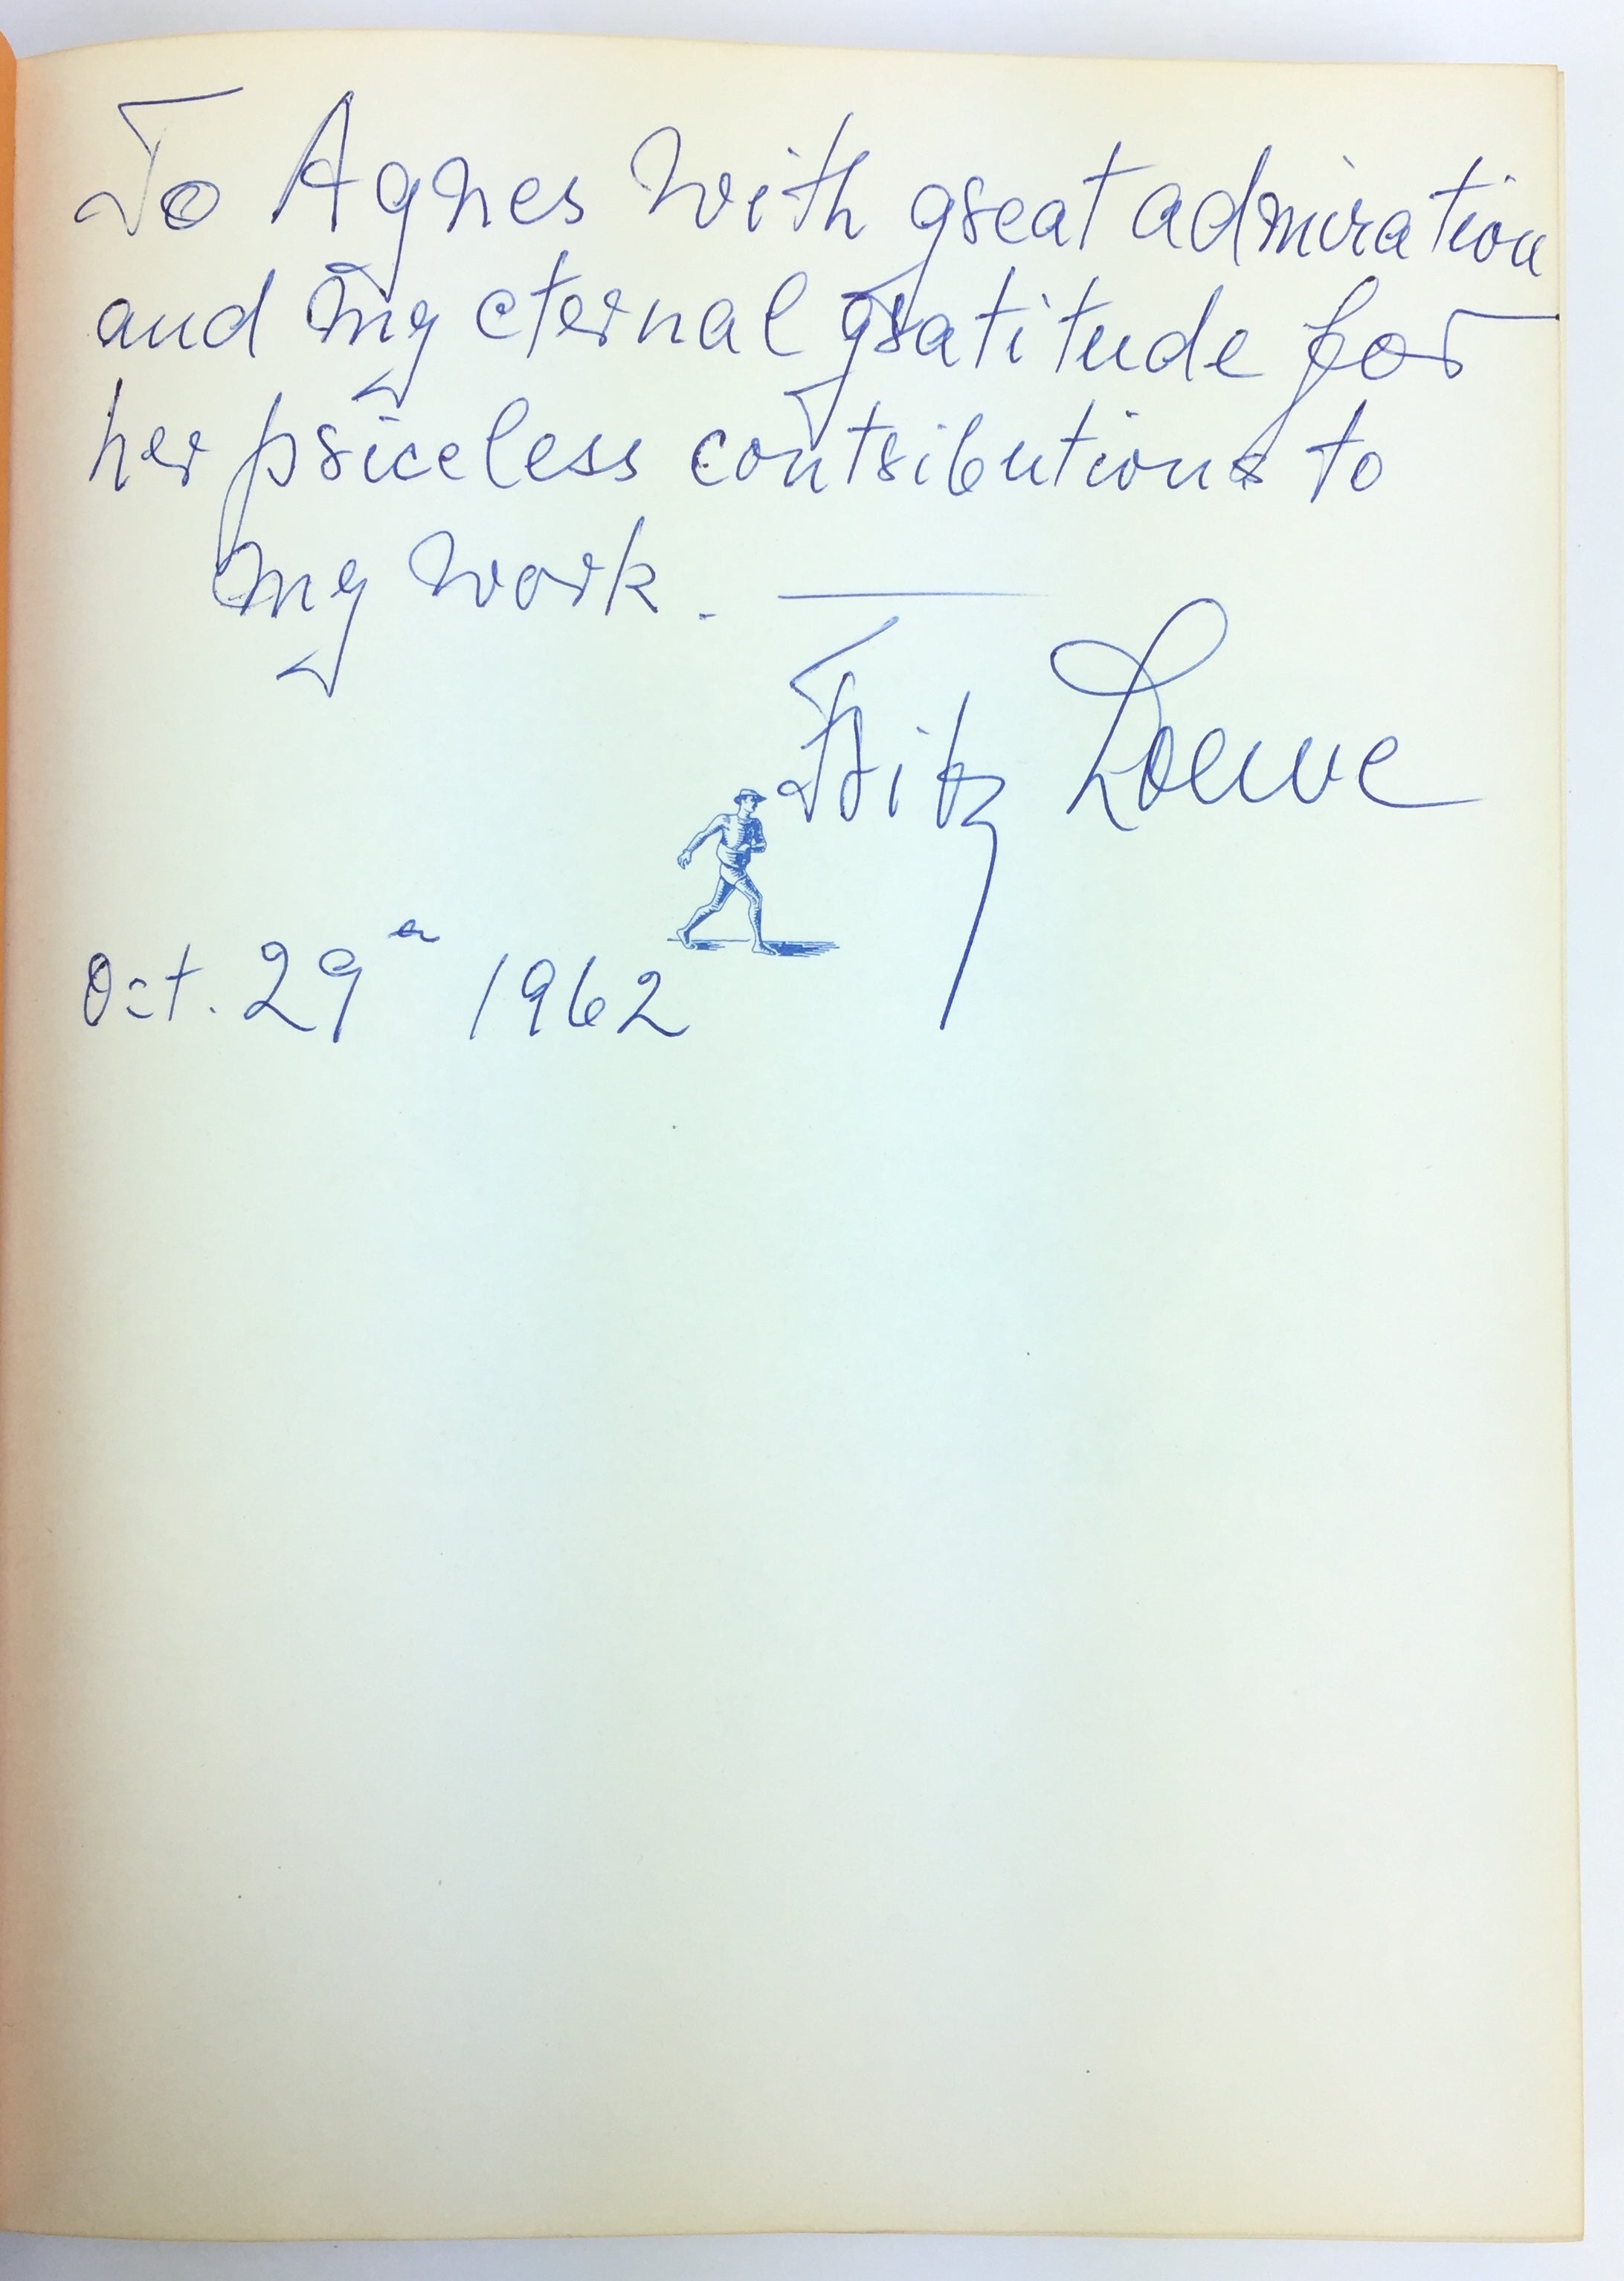 To Agnes with great admiration
and my eternal gratitude for
her priceless contributions to
my work.
Fritz Loewe
Oct. 29 1962